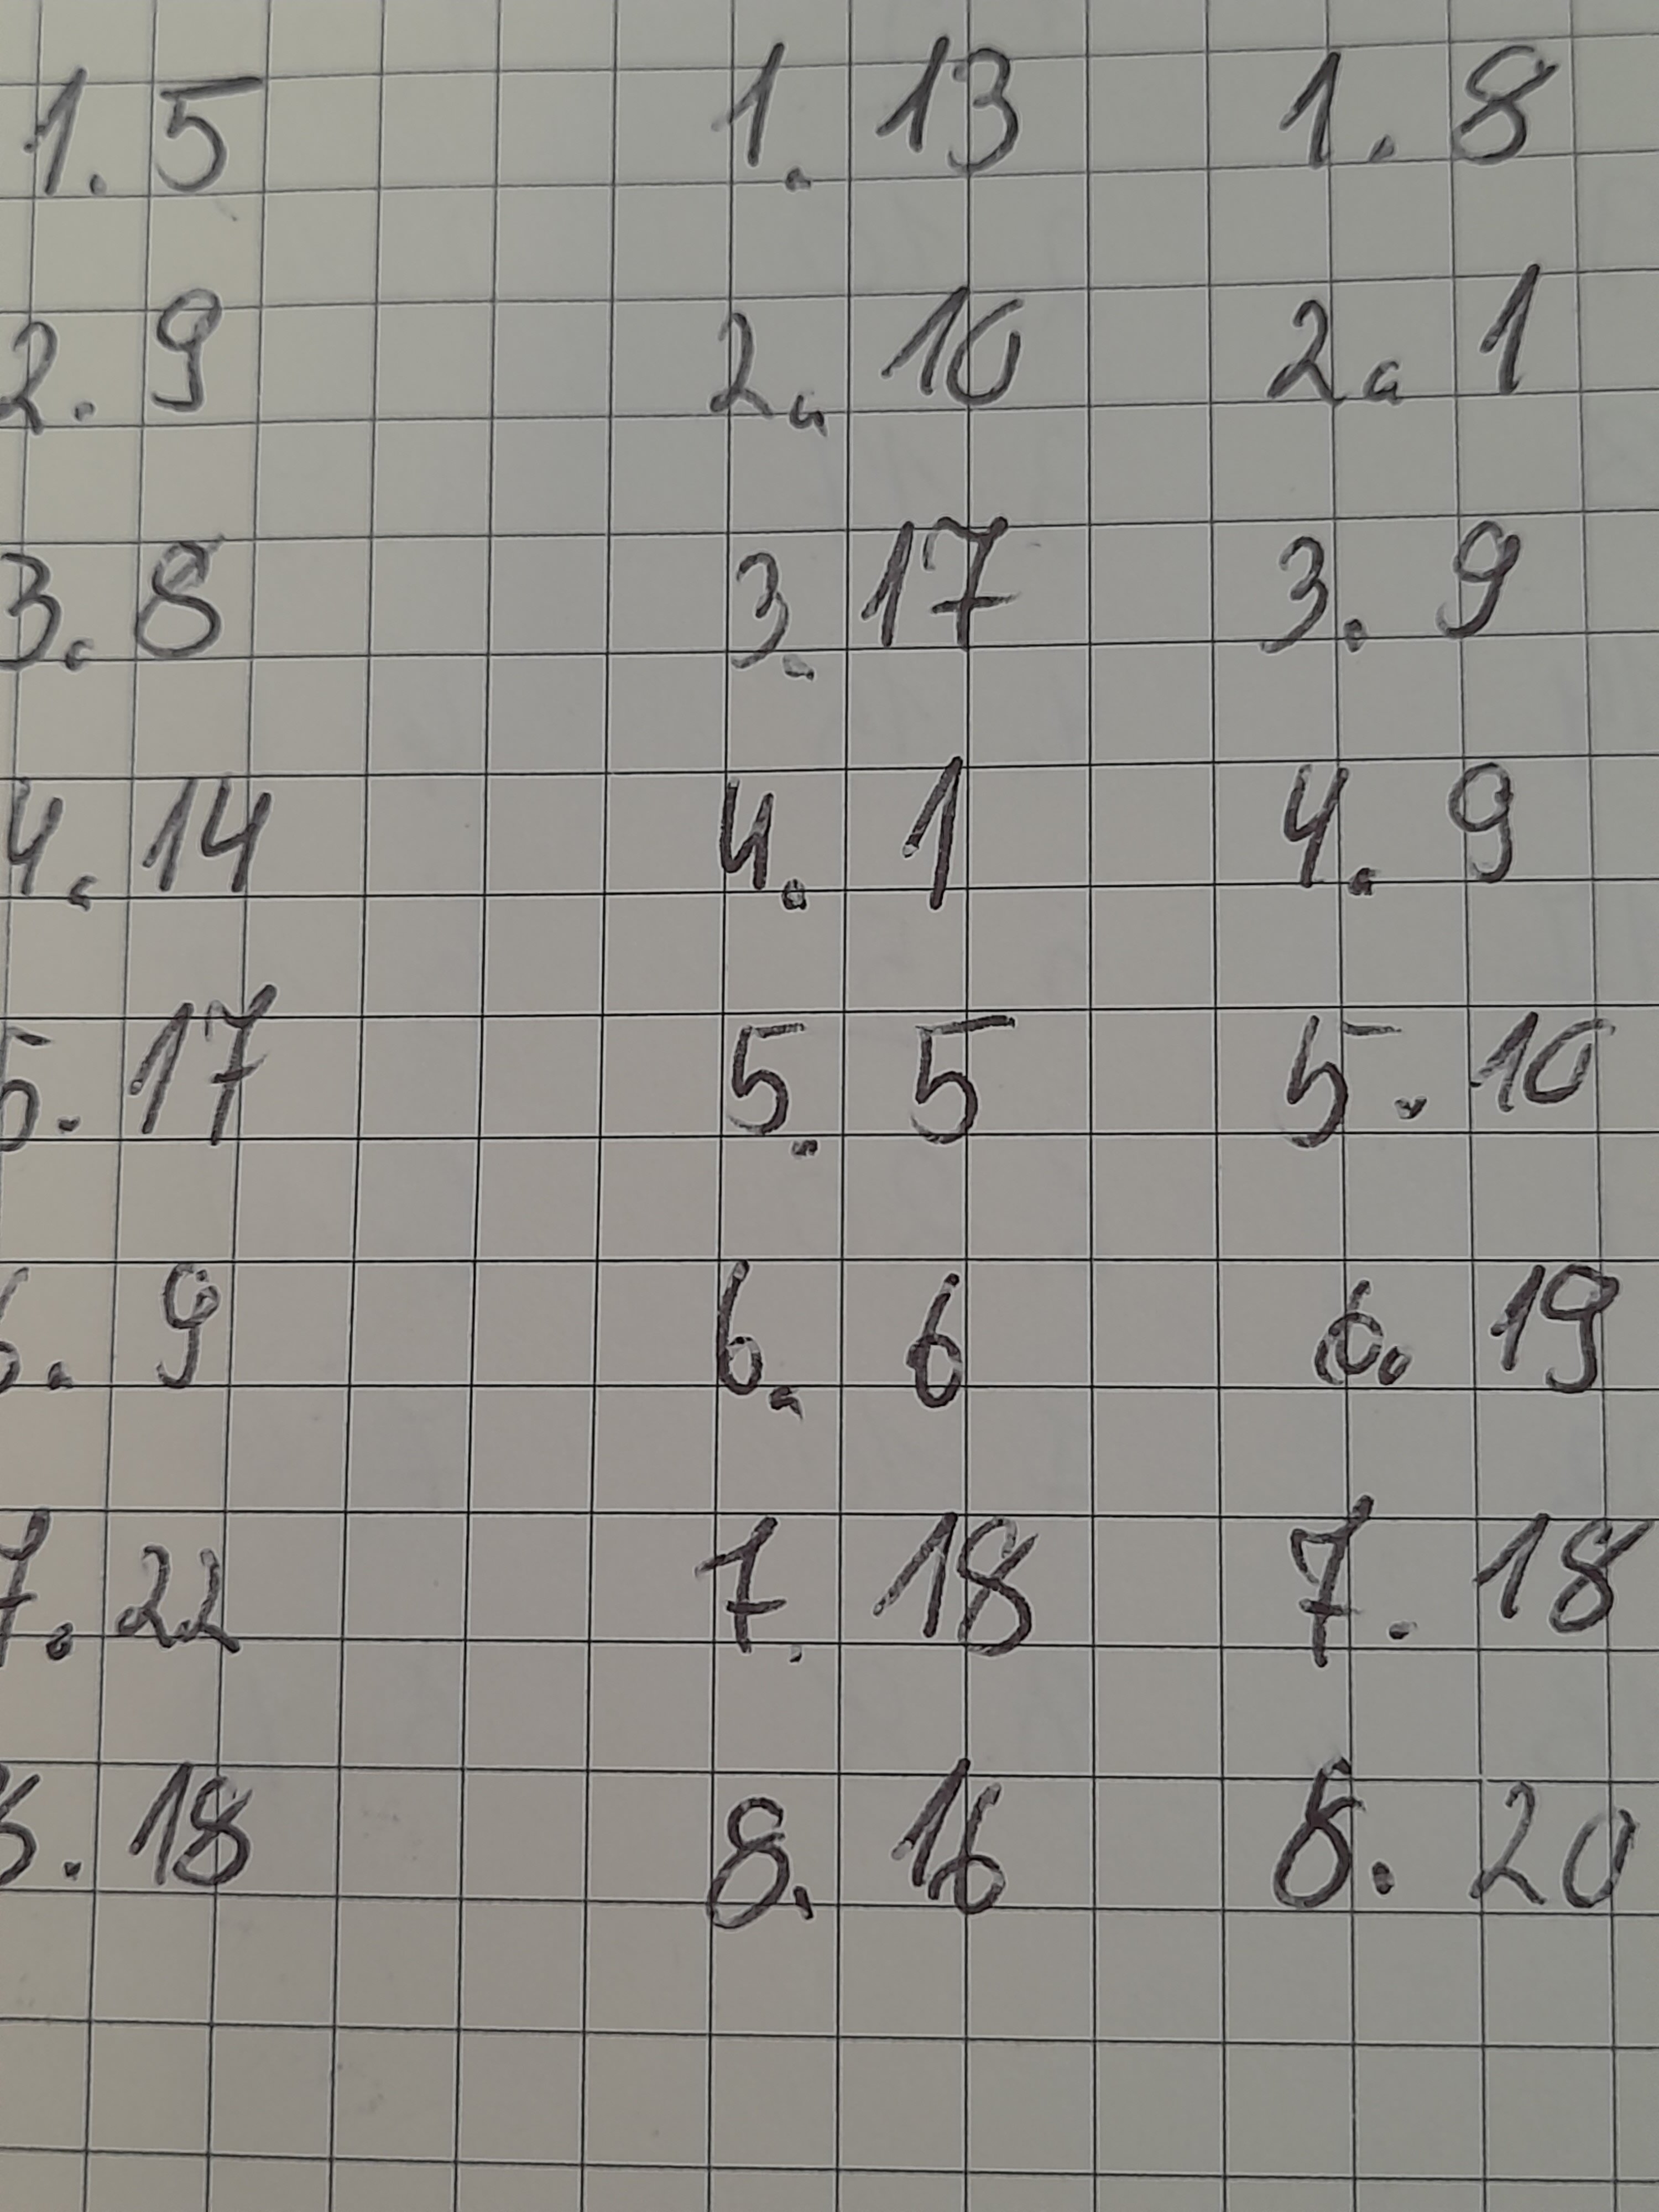 1. 5 1. 13 1. 8
2. 9 2. 10 2. 1
3. 8 3. 17 3. 9
4. 14 4. 1 4. 9
5. 17 5. 5 5. 10
6. 9 6. 6 6. 19
7. 22 7. 18 7. 18
8. 18 8. 16 8. 20